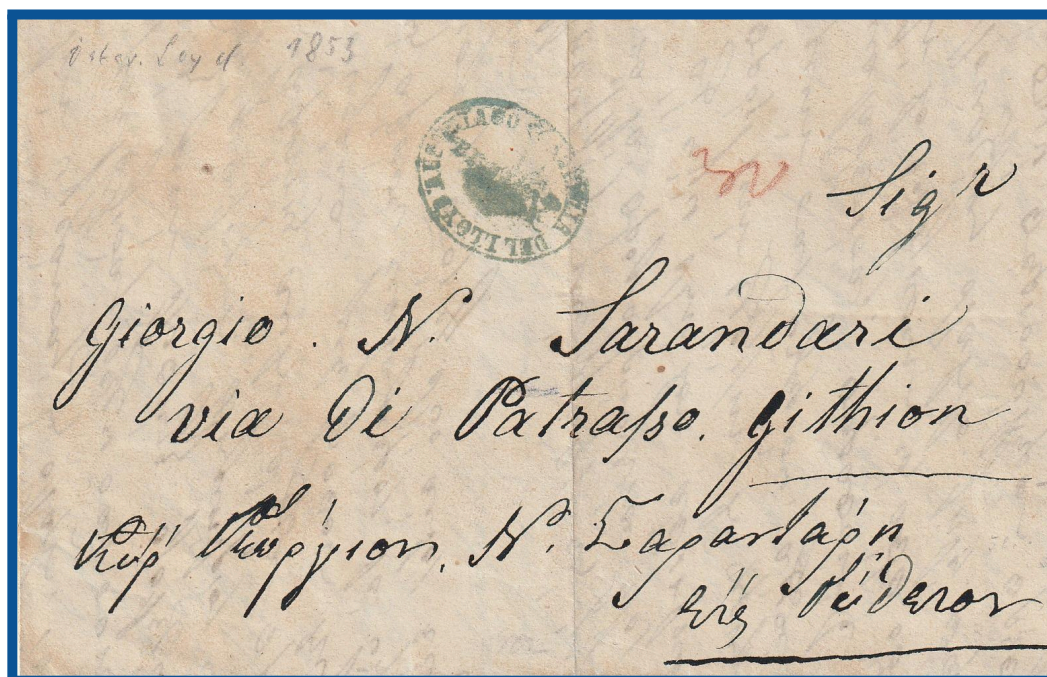 öster. Loyd 1853
DEL LLOYD AUSTRIACO
Sigr
Giorgio . N. Sarandari
via Di Patraſso. Githion
Κύρ Γεώργιον, Ν. Σαραντάρη
εἰς Γύθειον